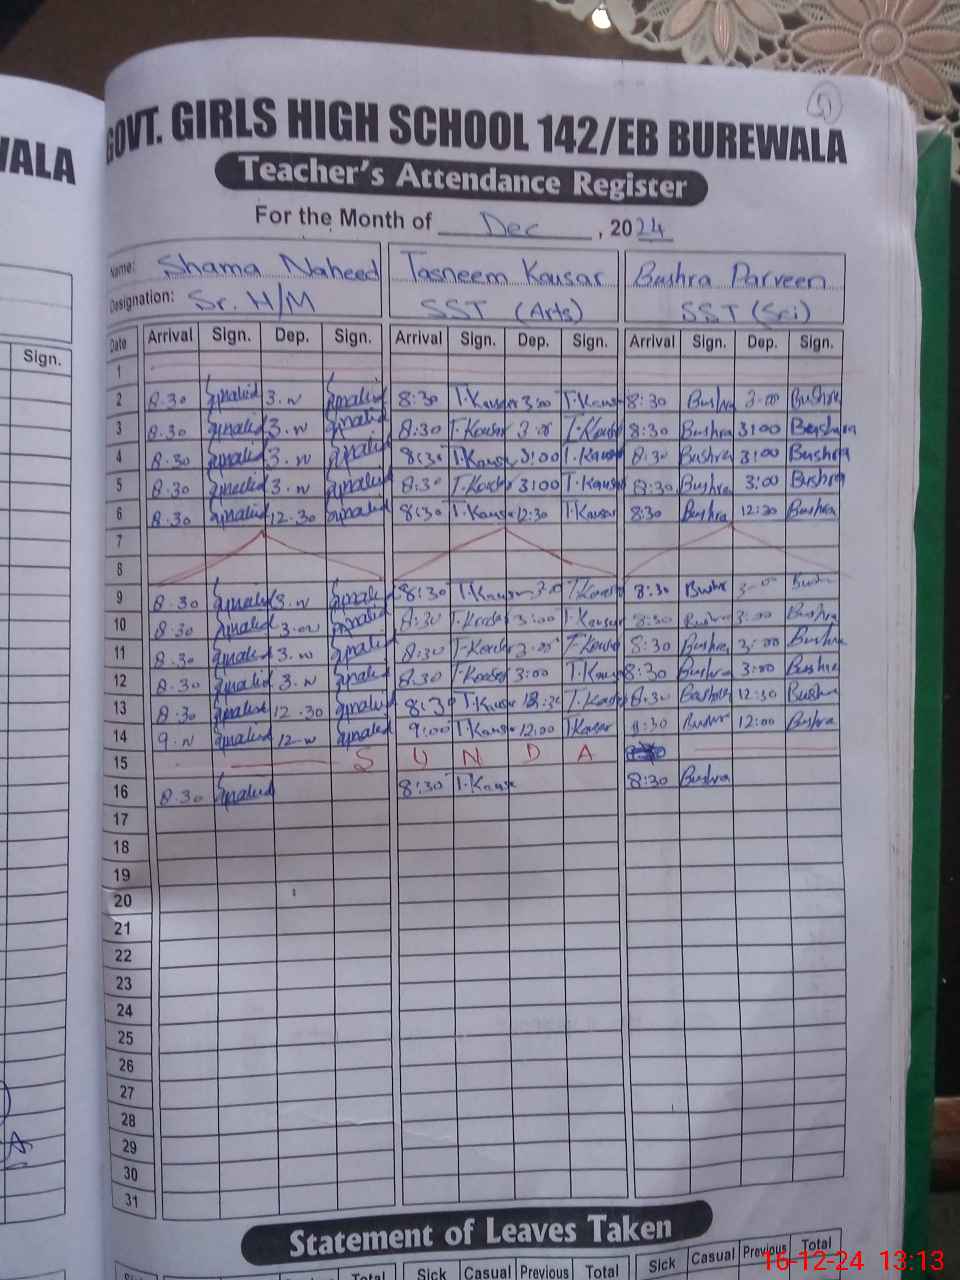 WALA
GOVT. GIRLS HIGH SCHOOL 142/EB BUREWALA
Teacher's Attendance Register
For the Month of Dec, 2024
Name: Shama Naheed Tasneem Kausar Bushra Parveen
Designation: Sr. H/M SST (Arts) SST (Sci)
Sign. Date Arrival Sign. Dep. Sign. Arrival Sign. Dep. Sign. Arrival Sign. Dep. Sign.
1
2 8:30 3. 8:30 T.Kausar 3:00 T.Kausar 8:30 Bushra 3:00 Bushra
3 8.30 3. 8:30 T.Kausar 3:00 T.Kausar 8:30 Bushra 3:00 Bushra
4 8.30 3. 8:30 T.Kausar 3:00 T.Kausar 8:30 Bushra 3:00 Bushra
5 8.30 3. 8:30 T.Kausar 3:00 T.Kausar 8:30 Bushra 3:00 Bushra
6 8.30 12.30 8:30 T.Kausar 12:30 T.Kausar 8:30 Bushra 12:30 Bushra
7
8
9 8.30 3. 8:30 T.Kausar 3:00 T.Kausar 8:30 Bushra 3:00 Bushra
10 8.30 3. 8:30 T.Kausar 3:00 T.Kausar 8:30 Bushra 3:00 Bushra
11 8.30 3. 8:30 T.Kausar 3:00 T.Kausar 8:30 Bushra 3:00 Bushra
12 8.30 3. 8:30 T.Kausar 3:00 T.Kausar 8:30 Bushra 3:00 Bushra
13 8.30 12.30 8:30 T.Kausar T.Kausar 8:30 Bushra 12:30 Bushra
14 9. 12. 9:00 T.Kausar 12:00 T.Kausar 8:30 Bushra 12:00 Bushra
15 S U N D A
16 8.30 8:30 T.Kausar 8:30 Bushra
17
18
19
20
21
22
23
24
25
26
27
28
29
30
31
Statement of Leaves Taken
Total Sick Casual Previous Total Sick Casual Previous Total
16-12-24 13:13